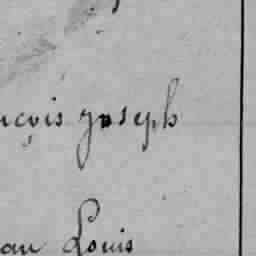 nçois joseph
ean Louis